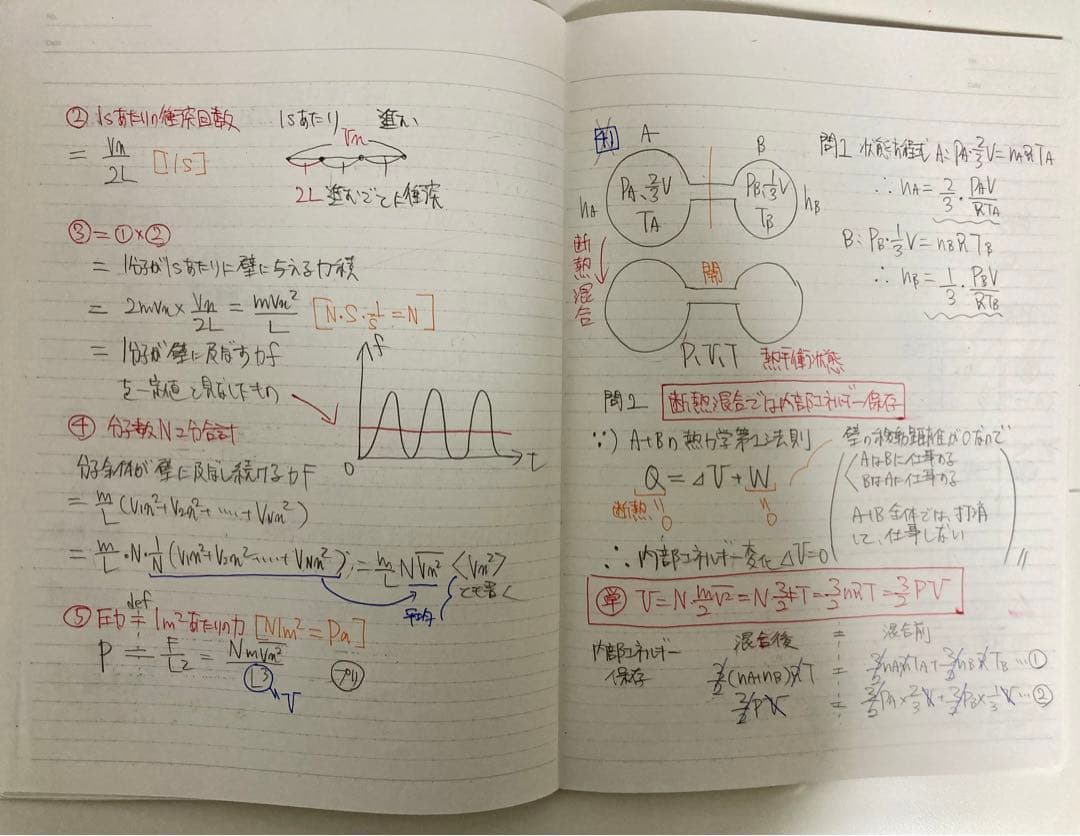 ② 1sあたりの衝突回数
1sあたり 進む
Vx
= Vx/2L [1/s]
2L 進むごとに衝突
③=①×②
= 1分子が1sあたりに壁に与える力積
= 2mVx × Vx/2L = mVx²/L [N・S・1/s = N]
= 1分子が壁に及ぼす力f
を一定値と見なしたもの
f
0
t
④ 分子数N個分合計
分子全体が壁に及ぼし続ける力F
= m/L (V1x²+V2x²+……+VNx²)
= m/L・N・1/N (V1x²+V2x²……+VNx²) = m/L N V̅x̅²̅ 〈Vx²〉
とも書く
平均
def
⑤ 圧力 = 1m²あたりの力 [N/m² = Pa]
P ≒ F/L² = NmV̅x̅²̅/L³
V
A
B
PA、2/3V
TA
nA
PB、1/3V
TB
nB
断熱混合
開
P、V、T 熱平衡状態
問1 状態方程式 A: PA・2/3V = nARTA
∴ nA = 2/3・PAV/RTA
B: PB・1/3V = nBRTB
∴ nB = 1/3・PBV/RTB
問2 断熱混合では内部エネルギー保存
∵) A+Bの熱力学第1法則
壁の移動距離が0なので
AはBに仕事する
BはAに仕事する
A+B全体では、打消
して、仕事しない
Q = ΔU + W
断熱 = 0
= 0
∴ 内部エネルギー変化 ΔU=0
単 U = N・m/2 V̅²̅ = N・3/2kT = 3/2nRT = 3/2PV
内部エネルギー
保存
混合後 = 混合前
3/2(nA+nB)RT = 3/2nARTA + 3/2nBRTB …①
3/2PV = 3/2PA×2/3V + 3/2PB×1/3V …②